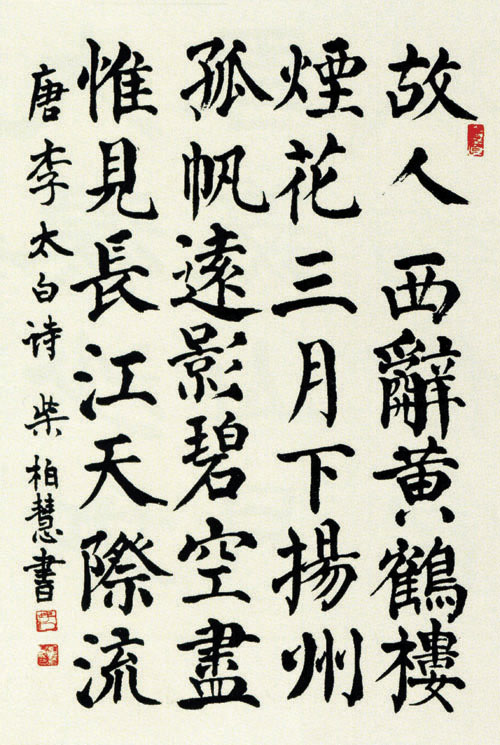 故人西辭黄鶴樓
煙花三月下揚州
孤帆遠影碧空盡
惟見長江天際流
唐李太白诗 柴柏慧書